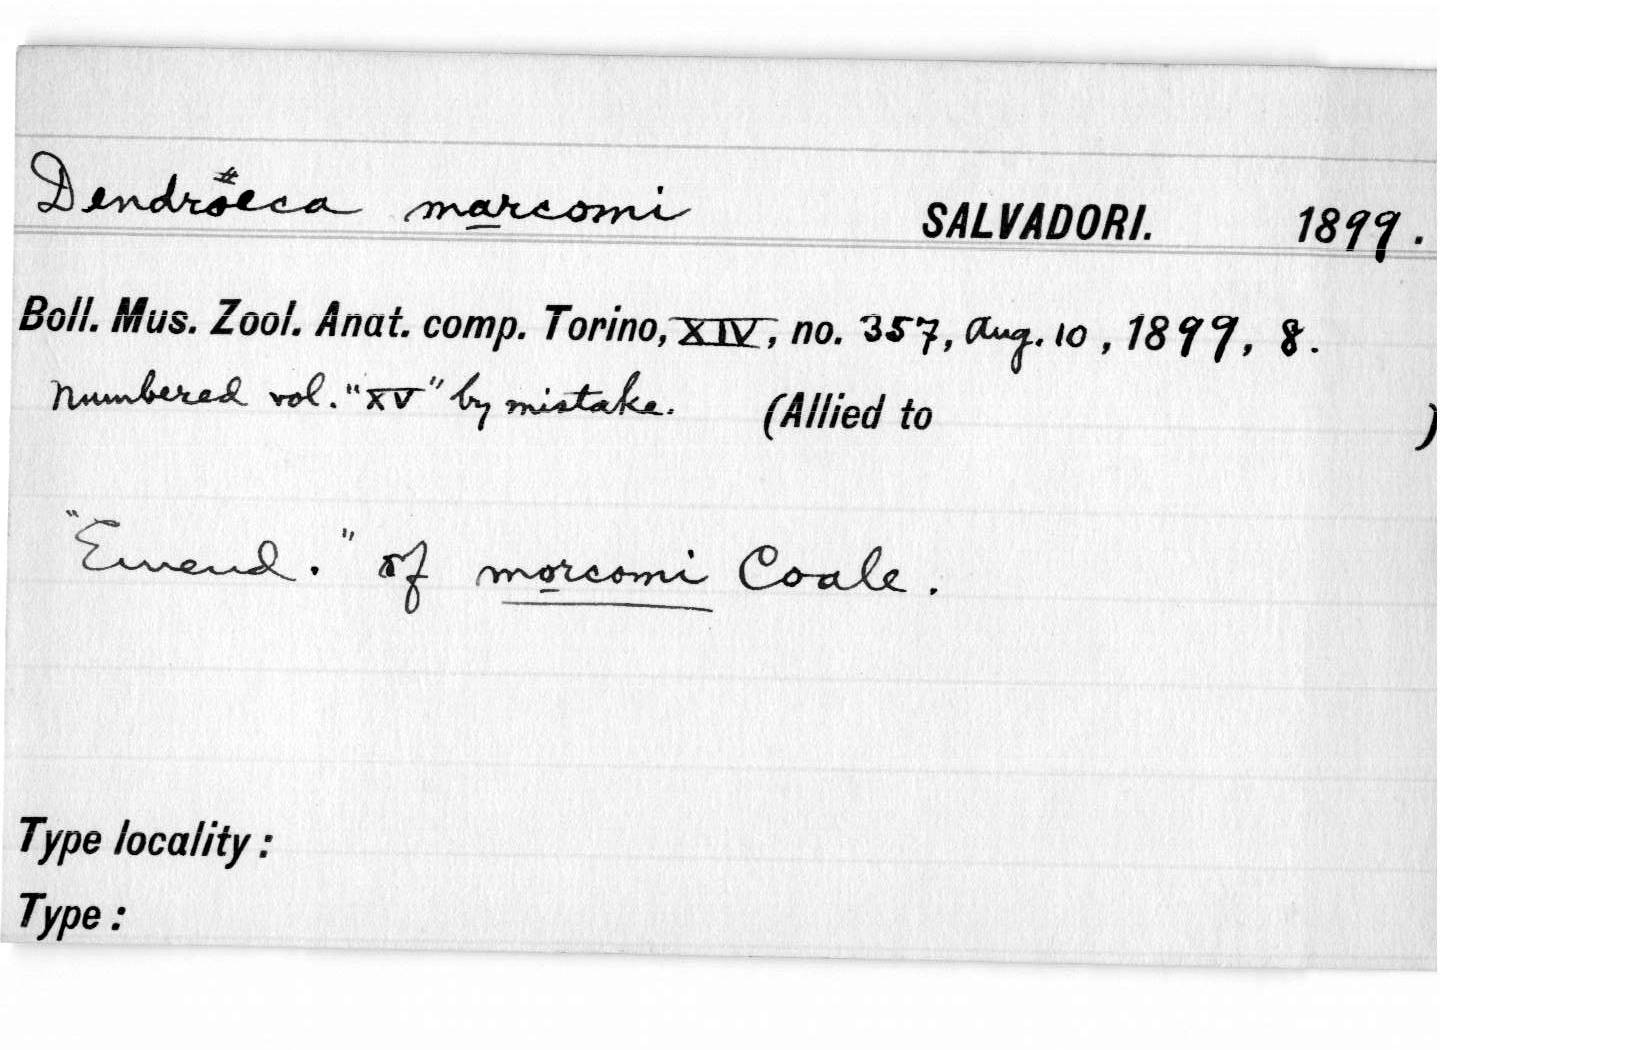 Dendroeca marcomi SALVADORI. 1899.
Boll. Mus. Zool. Anat. comp. Torino, XIV, no. 357, Aug. 10, 1899, 8.
Numbered vol. "XV" by mistake. (Allied to )
"Emend." of morcomi Coale.
Type locality:
Type: